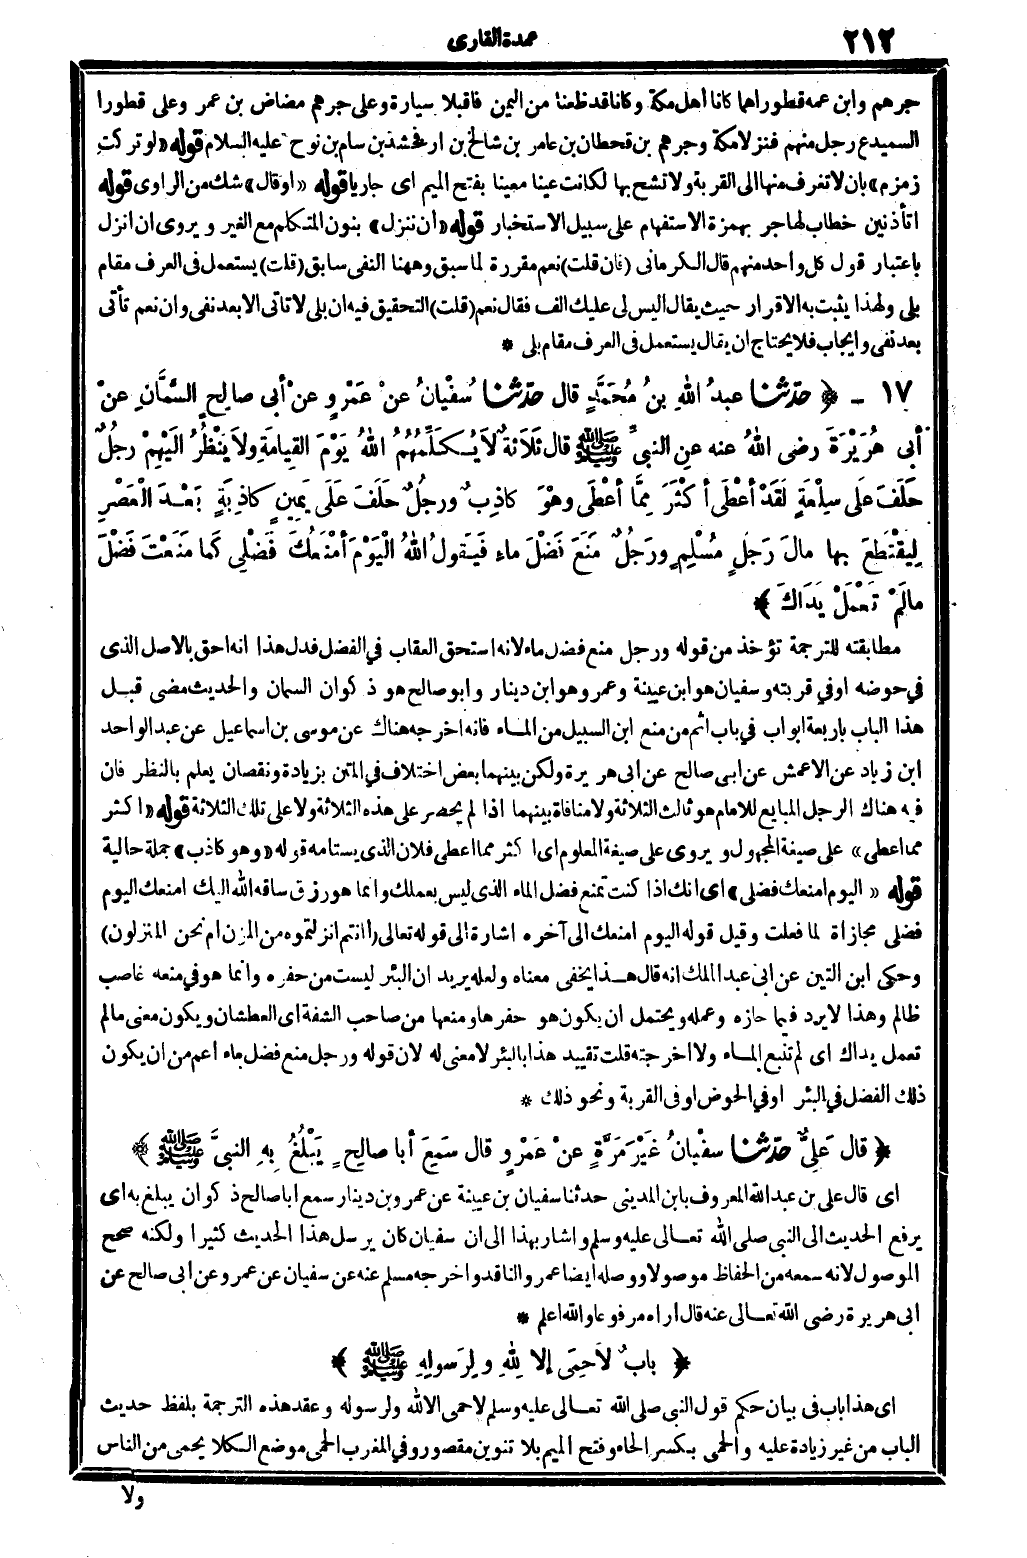 ٢١٢
عمدة القارى
جرهم وابن عمه قطورا هما كانا أهل مكة وكانا قد ظعنا من اليمن فاقبلا سيارة وعلى جرهم مضاض بن عمر وعلى قطورا
السميدع رجل منهم فنزلا مكة وجرهم بن قحطان بن عامر بن شالخ بن ارفخشذ بن سام بن نوح عليه السلام قوله «لو تركت
زمزم» بان لا تغرف منها الى القربة ولا تشح بها لكانت عينا معينا بفتح الميم اى جاريا قوله «او قال» شك من الراوى قوله
اتأذنين خطاب لهاجر بهمزة الاستفهام على سبيل الاستخبار قوله «أن ننزل» بنون المتكلم مع الغير ويروى ان انزل
باعتبار قول كل واحد منهم قال الكرمانى (فان قلت) نعم مقررة لما سبق وههنا النفى سابق (قلت) يستعمل فى العرف مقام
بلى ولهذا يثبت به الاقرار حيث يقال اليس لى عليك الف فقال نعم (قلت) التحقيق فيه ان بلى لا تاتى الا بعد نفى وان نعم تأتى
بعد نفى وايجاب فلا يحتاج ان يقال يستعمل فى العرف مقام بلى *
١٧ ـ ﴿ حَدَّثنا عبدُ اللهِ بنُ مُحَمَّدٍ قال حَدَّثنا سُفْيانُ عنْ عَمْرٍو عنْ أبى صالِحٍ السَّمَّانِ عنْ
أبى هُرَيْرَةَ رضى اللهُ عنه عنِ النبىِّ ﷺ قال ثَلاَثَةٌ لاَ يُكَلِّمُهُمُ اللهُ يَوْمَ القِيامَةِ ولاَ يَنْظُرُ الَيْهِمْ رجُلٌ
حَلَفَ عَلَى سِلْعَةٍ لَقَدْ أعْطَى أكْثَرَ مِمَّا أعْطَى وهْوَ كاذِبٌ ورجُلٌ حَلَفَ عَلَى يَمِينٍ كاذِبَةٍ بَعْدَ الْعَصْرِ
لِيقْتَطِعَ بها مالَ رَجُلٍ مُسْلِمٍ ورَجُلٌ مَنَعَ فَضْلَ ماءٍ فَيَقولُ اللهُ الْيَوْمَ أمْنَعُكَ فَضْلِى كَما مَنَعْتَ فَضْلَ
مالَمْ تَعْمَلْ يَدَاكَ ﴾
مطابقته للترجمة تؤخذ من قوله ورجل منع فضل ماء لانه استحق العقاب في الفضل فدل هذا انه احق بالاصل الذى
في حوضه او في قربته وسفيان هو ابن عيينة وعمرو هو ابن دينار وابو صالح هو ذكوان السمان والحديث مضى قبل
هذا الباب باربعة ابواب في باب اثم من منع ابن السبيل من الماء فانه اخرجه هناك عن موسى بن اسماعيل عن عبد الواحد
ابن زياد عن الاعمش عن ابى صالح عن ابى هريرة ولكن بينهما بعض اختلاف في المتن بزيادة ونقصان يعلم بالنظر فان
فيه هناك الرجل المبايع للامام هو ثالث الثلاثة ولا منافاة بينهما اذا لم يحصر على هذه الثلاثة ولا على تلك الثلاثة قوله «اكثر
مما اعطى» على صيغة المجهول ويروى على صيغة المعلوم اى اكثر مما اعطى فلان الذى يستامه قوله «وهو كاذب» جملة حالية
قوله «اليوم امنعك فضلى» اى انك اذا كنت تمنع فضل الماء الذى ليس بعملك وانما هو رزق ساقه الله اليك امنعك اليوم
فضلى مجازاة لما فعلت وقيل قوله اليوم امنعك الى آخره اشارة الى قوله تعالى (أانتم انزلتموه من المزن ام نحن المنزلون)
وحكى ابن التين عن ابى عبد الملك انه قال هذا يخفى معناه ولعله يريد ان البئر ليست من حفره وانما هو في منعه غاصب
ظالم وهذا لا يرد فيما حازه وعمله ويحتمل ان يكون هو حفرها ومنعها من صاحب الشفة اى العطشان ويكون معنى مالم
تعمل يداك اى لم تنبع الماء ولا اخرجته قلت تقييد هذا بالبئر لا معنى له لان قوله ورجل منع فضل ماء أعم من ان يكون
ذلك الفضل في البئر او في الحوض او فى القربة ونحو ذلك *
﴿ قال عَلِىٌّ حَدَّثنا سفْيانُ غَيْرَ مَرَّةٍ عنْ عَمْرٍو قال سَمِعَ أبا صالِحٍ يَبْلُغُ بِهِ النبىَّ ﷺ ﴾
اى قال على بن عبد الله المعروف بابن المدينى حدثنا سفيان بن عيينة عن عمرو بن دينار سمع ابا صالح ذكوان يبلغ به اى
يرفع الحديث الى النبى صلى الله تعالى عليه وسلم واشار بهذا الى ان سفيان كان يرسل هذا الحديث كثيرا ولكنه صحح
الموصول لانه سمعه من الحفاظ موصولا ووصله ايضا عمرو الناقد واخرجه مسلم عنه عن سفيان عن عمرو عن ابى صالح عن
ابى هريرة رضى الله تعالى عنه قال اراه مرفوعا والله اعلم *
﴿ بابٌ لاَ حِمَى إلا لِلهِ ولِرَسولِهِ ﷺ ﴾
اى هذا باب فى بيان حكم قول النبى صلى الله تعالى عليه وسلم لا حمى الا لله ولرسوله وعقد هذه الترجمة بلفظ حديث
الباب من غير زيادة عليه والحمى بكسر الحاء وفتح الميم بلا تنوين مقصور وفي المغرب الحمى موضع الكلا يحمى من الناس
ولا